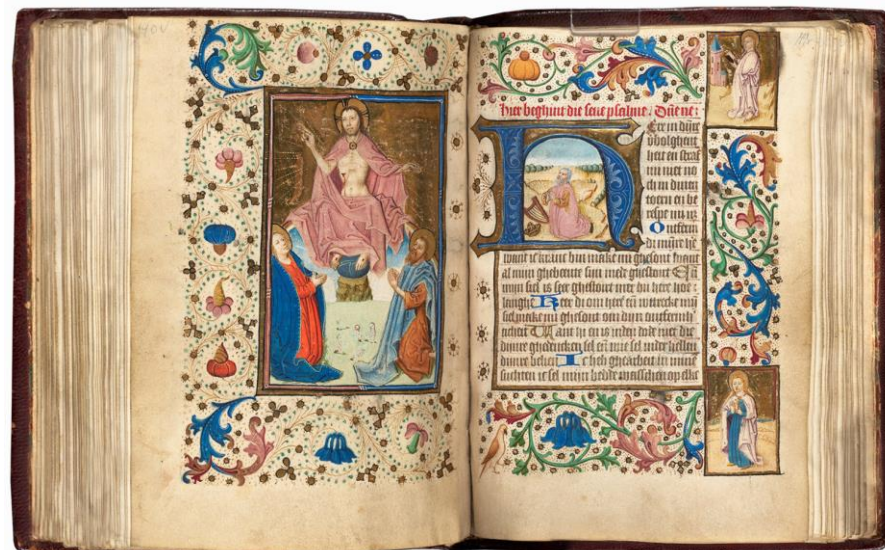 hier beghint die seue psalme. Dn̄e ne:
Ere in dinre
v̄bolghent
heit en straf
mi niet no
ch in dinen
toern en be
respe mi niet
Ontferm
di mijnre h̄e
want ic kranc bin make mi ghesont want
al mijn ghebeente sijn mede ghestoirt En̄
mijn siel is seer ghestoirt mer du here hoe
langhe Kere di om here en̄ verwecke mijn
siel make mi ghesont om dijn ontfermh
Want hi en is inder doot niet die
dinre ghedencken sel en̄ wie sel inder hellen
dinre belien Ic heb ghearbeit in minen
suchten ic sel mijn bedde wasschen op elke